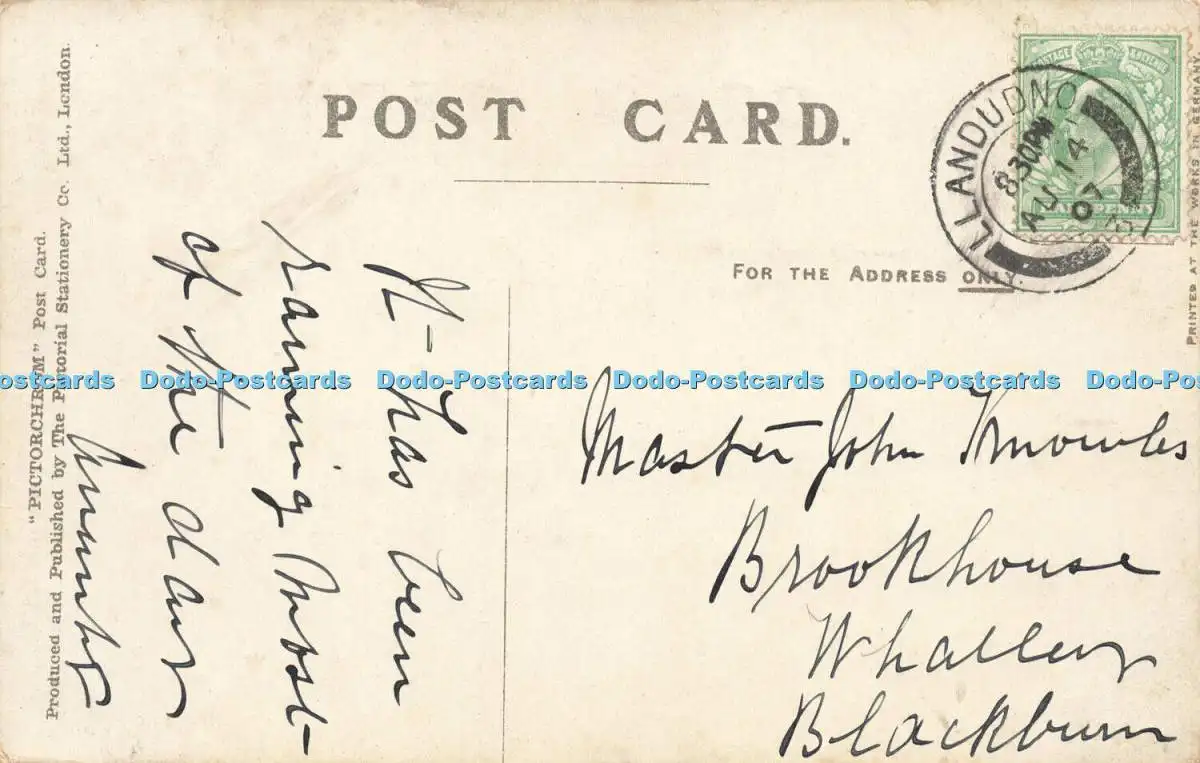 POST CARD.
FOR THE ADDRESS ONLY.
LLANDUDNO
8 30PM
AU 14
07
POSTAGE & REVENUE
HALFPENNY
PRINTED AT THE WORKS IN GERMANY
"PICTORCHROM" Post Card.
Produced and Published by The Pictorial Stationery Co. Ltd., London.
It has been
raining most
of the day
Mumty
Master John Knowles
Brookhouse
Whalley
Blackburn
Dodo-Postcards Dodo-Postcards Dodo-Postcards Dodo-Postcards Dodo-Postcards Dodo-Postcards